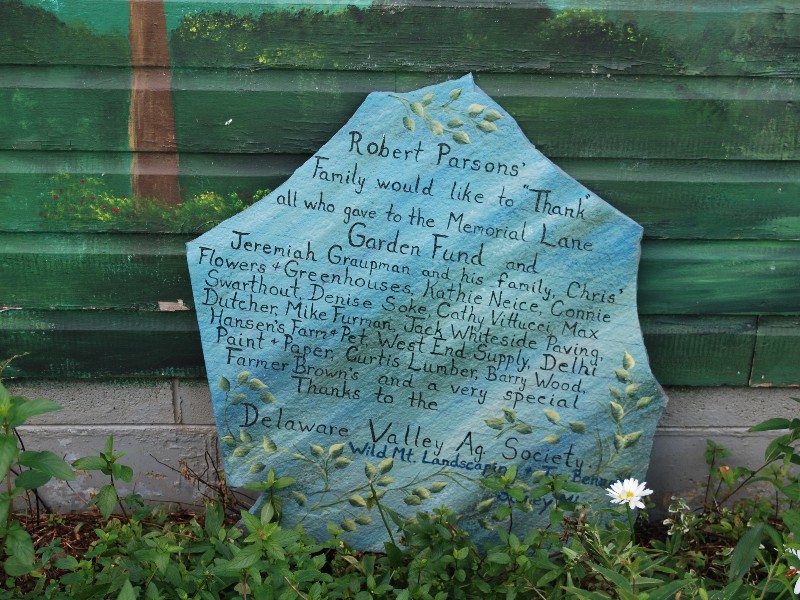 Robert Parsons'
Family would like to "Thank"
all who gave to the Memorial Lane
Garden Fund and
Jeremiah Graupman and his family, Chris'
Flowers + Greenhouses, Kathie Neice, Connie
Swarthout, Denise Soke, Cathy Vittucci, Max
Dutcher, Mike Furman, Jack Whiteside Paving,
Hansen's Farm + Pet, West End Supply, Delhi
Paint + Paper, Curtis Lumber, Barry Wood,
Farmer Brown's and a very special
Thanks to the
Delaware Valley Ag. Society.
Wild Mt. Landscaping +